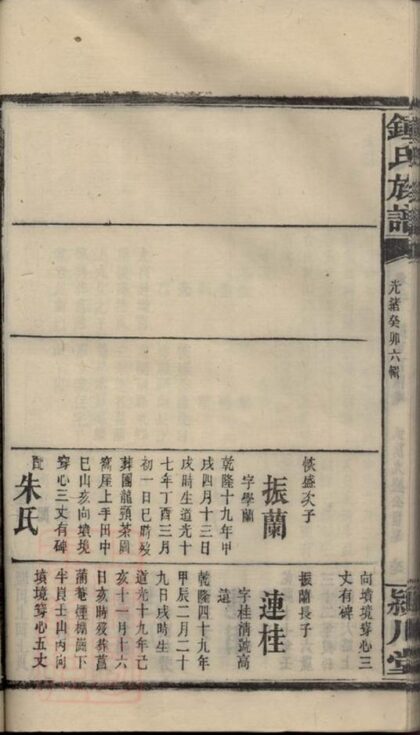 鍾氏族譜
光緒癸卯六輯
潁川堂
盛次子
振蘭
字學蘭
乾隆十九年甲
戌四月十三日
戌時生道光十
七年丁酉三月
初一日巳時歿
葬團龍頸茶園
窩尾上手田中
巳山亥向墳境
穿心三丈有碑
配
朱氏
向墳境穿心三
丈有碑
振蘭長子
連桂
字桂清號高
遠
乾隆四十九年
甲辰二月二十
九日戌時生
道光十九年己
亥十一月十六
日亥時歿葬菖
蒲菴煙棚崗下
艮山向
墳境穿心五丈